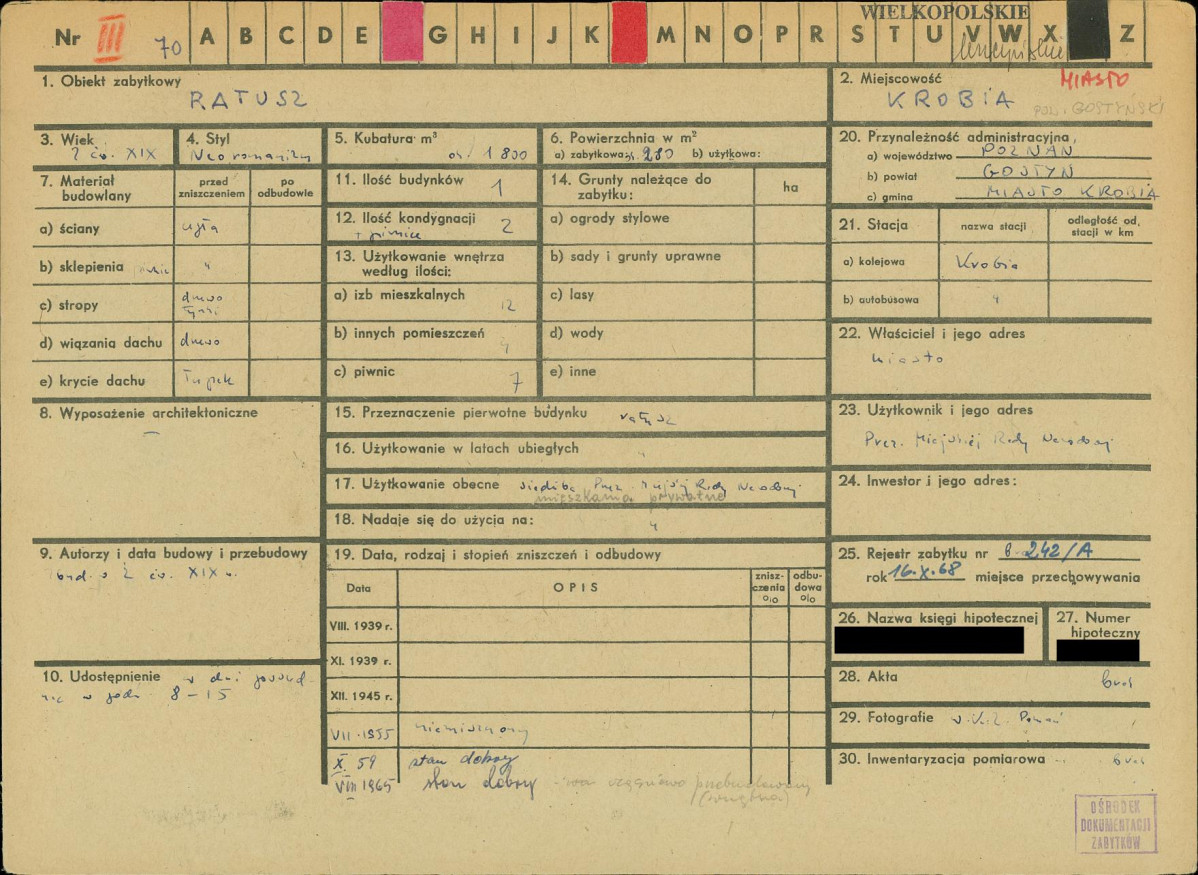 WIELKOPOLSKIE
Nr III 70 A B C D E G H I J K M N O P R S T U V W X Z
1. Obiekt zabytkowy
RATUSZ
2. Miejscowość
MIASTO
KROBIA
POW. GOSTYŃSKI
3. Wiek
2 ćw. XIX
4. Styl
Neoromanizm
5. Kubatura m³
ok. 1800
6. Powierzchnia w m²
a) zabytkowa: 280 b) użytkowa:
20. Przynależność administracyjna
a) województwo POZNAŃ
b) powiat GOSTYŃ
c) gmina MIASTO KROBIA
7. Materiał budowlany
przed zniszczeniem
po odbudowie
a) ściany cegła
b) sklepienia "
c) stropy drewo
d) wiązania dachu drewo
e) krycie dachu łupek
11. Ilość budynków 1
12. Ilość kondygnacji 2
+ piwnice
13. Użytkowanie wnętrza
według ilości:
a) izb mieszkalnych 12
b) innych pomieszczeń 4
c) piwnic 7
14. Grunty należące do
zabytku: ha
a) ogrody stylowe
b) sady i grunty uprawne
c) lasy
d) wody
e) inne
21. Stacja
nazwa stacji
odległość od
stacji w km
a) kolejowa Krobia
b) autobusowa "
22. Właściciel i jego adres
miasto
8. Wyposażenie architektoniczne
–
15. Przeznaczenie pierwotne budynku ratusz
16. Użytkowanie w latach ubiegłych "
17. Użytkowanie obecne siedziba Prez. Miejskiej Rady Narodowej
mieszkania prywatne
18. Nadaje się do użycia na: "
23. Użytkownik i jego adres
Prez. Miejskiej Rady Narodowej
24. Inwestor i jego adres:
9. Autorzy i data budowy i przebudowy
bud. 2 ćw. XIX w.
19. Data, rodzaj i stopień zniszczeń i odbudowy
Data
OPIS
znisz-
czenia
o/o
odbu-
dowa
o/o
VIII. 1939 r.
XI. 1939 r.
XII. 1945 r.
VII. 1955 niezniszczony
X. 59 stan dobry
VIII 1965 stan dobry - przebudowany
(wnętrza)
25. Rejestr zabytku nr 242/A
rok 16.X.68 miejsce przechowywania
26. Nazwa księgi hipotecznej
27. Numer
hipoteczny
10. Udostępnienie w dni powszed-
nie w godz. 8-15
28. Akta brak
29. Fotografie w.K.Z. Poznań
30. Inwentaryzacja pomiarowa brak
OŚRODEK
DOKUMENTACJI
ZABYTKÓW